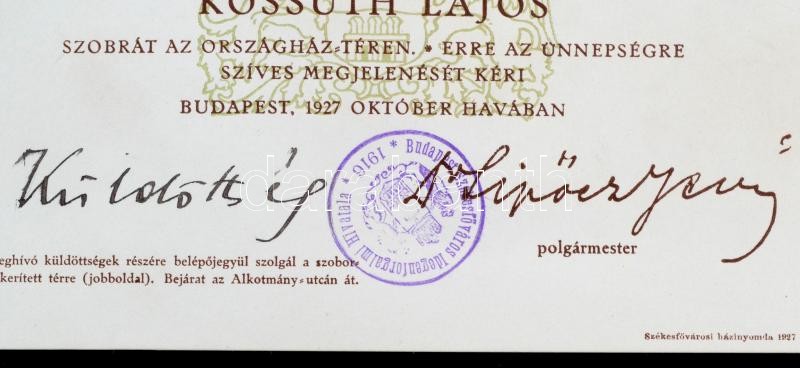 KOSSUTH LAJOS
SZOBRÁT AZ ORSZÁGHÁZ-TÉREN. * ERRE AZ ÜNNEPSÉGRE
SZÍVES MEGJELENÉSÉT KÉRI
BUDAPEST, 1927 OKTÓBER HAVÁBAN
Küldöttség
Dr Sipőcz Jenő
polgármester
Budapest Székesfőváros Idegenforgalmi Hivatala * 1916 *
darabanth
eghívó küldöttségek részére belépőjegyül szolgál a szobor-
kerített térre (jobboldal). Bejárat az Alkotmány-utcán át.
Székesfővárosi házinyomda 1927